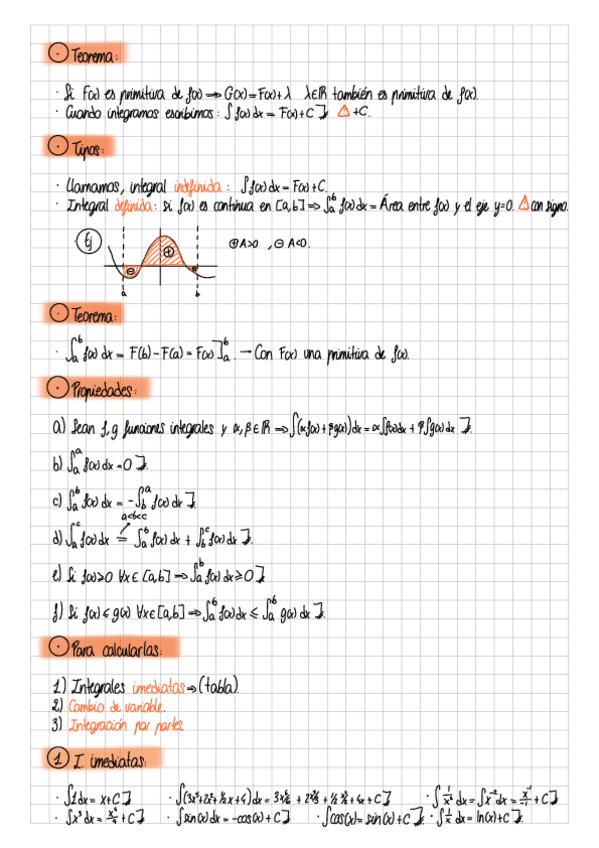 · Teorema:
· Si F(x) es primitiva de f(x) ⟹ G(x) = F(x) + λ λ∈ℝ también es primitiva de f(x).
· Cuando integramos escribimos: ∫ f(x) dx = F(x) + C ⚠ +C.
· Tipos:
· Llamamos, integral indefinida: ∫ f(x) dx = F(x) + C.
· Integral definida: si f(x) es continua en [a,b] ⟹ ∫_a^b f(x) dx = Área entre f(x) y el eje y=0. ⚠ con signo.
Ej
⊕ A>0 , ⊖ A<0.
⊕
⊖
a b
· Teorema:
· ∫_a^b f(x) dx = F(b) - F(a) = F(x)]_a^b → Con F(x) una primitiva de f(x).
· Propiedades:
a) Sean f,g funciones integrales y α, β ∈ ℝ ⟹ ∫(αf(x) + βg(x)) dx = α∫f(x)dx + β∫g(x) dx
b) ∫_a^a f(x) dx = 0
c) ∫_a^b f(x) dx = -∫_b^a f(x) dx
a<b<c
d) ∫_a^c f(x) dx = ∫_a^b f(x) dx + ∫_b^c f(x) dx
e) Si f(x)≥0 ∀x∈[a,b] ⟹ ∫_a^b f(x) dx ≥ 0
f) Si f(x) ≤ g(x) ∀x∈[a,b] ⟹ ∫_a^b f(x) dx ≤ ∫_a^b g(x) dx
· Para calcularlas:
1) Integrales imediatas → (tabla).
2) Cambio de variable.
3) Integración por partes.
1 I. imediatas:
· ∫1 dx = x + C · ∫ 1/x² dx = ∫x⁻² dx = x⁻¹/-1 + C
· ∫sin(x) dx = -cos(x) + C · ∫cos(x) = sin(x) + C · ∫ 1/x dx = ln(x) + C